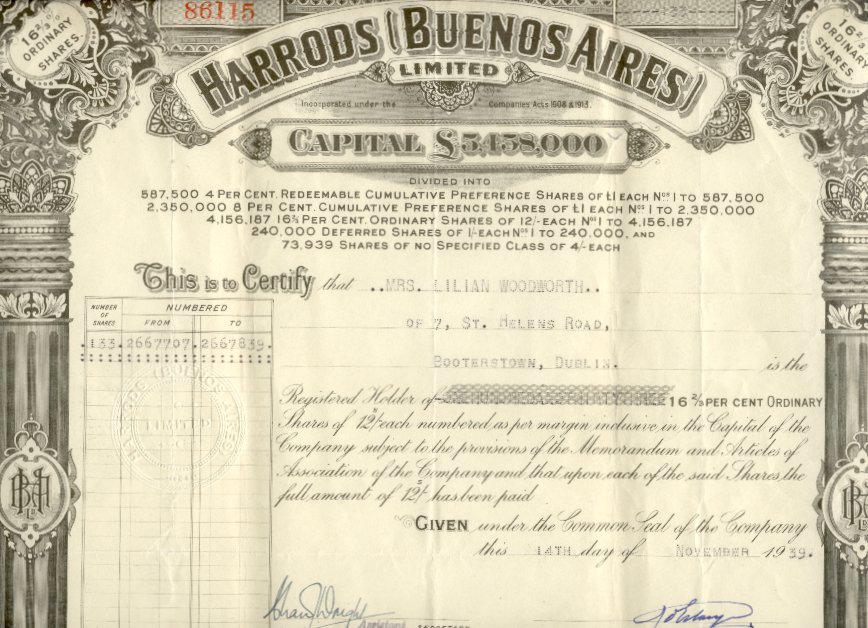 86115
16⅔%
ORDINARY
SHARES.
16⅔
ORDINARY
SHARES.
HARRODS (BUENOS AIRES)
LIMITED
Incorporated under the Companies Acts 1908 & 1913.
CAPITAL £5,458,000
DIVIDED INTO
587,500 4 PER CENT. REDEEMABLE CUMULATIVE PREFERENCE SHARES OF £1 EACH Nos 1 TO 587,500
2,350,000 8 PER CENT. CUMULATIVE PREFERENCE SHARES OF £1 EACH Nos 1 TO 2,350,000
4,156,187 16⅔ PER CENT. ORDINARY SHARES OF 12/- EACH Nos 1 TO 4,156,187
240,000 DEFERRED SHARES OF 1/- EACH Nos 1 TO 240,000, AND
73,939 SHARES OF NO SPECIFIED CLASS OF 4/- EACH
This is to Certify that ..MRS. LILIAN WOODWORTH..
OF 7, ST. HELENS ROAD,
BOOTERSTOWN, DUBLIN. is the
Registered Holder of 16 ⅔ PER CENT ORDINARY
Shares of 12/s each numbered as per margin inclusive in the Capital of the
Company subject to the provisions of the Memorandum and Articles of
Association of the Company and that upon each of the said Shares, the
full amount of 12/s has been paid
GIVEN under the Common Seal of the Company
this 14TH day of NOVEMBER 1939.
NUMBER OF SHARES
NUMBERED
FROM TO
.133.2667707.2667839.
HARRODS (BUENOS AIRES)
LIMITED
Assistant SECRETARY